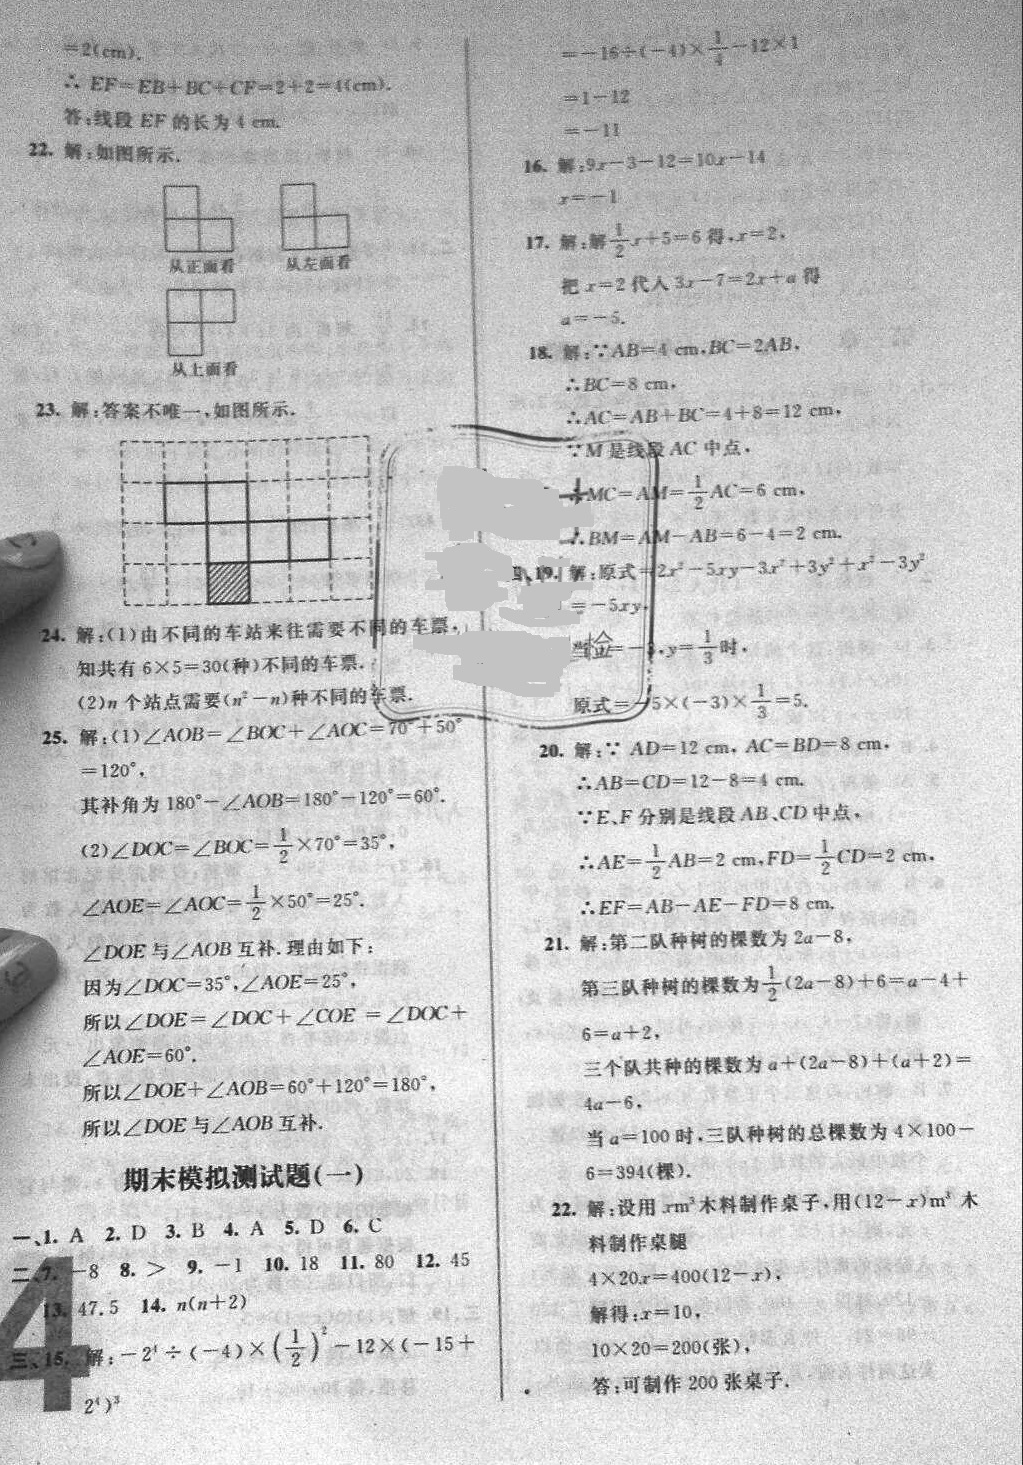 =2(cm).
∴ EF=EB+BC+CF=2+2=4(cm).
答:线段 EF 的长为 4 cm.
22. 解:如图所示.
从正面看 从左面看
从上面看
23. 解:答案不唯一,如图所示.
24. 解:(1)由不同的车站来往需要不同的车票,
知共有 6×5=30(种)不同的车票.
(2)n 个站点需要(n²-n)种不同的车票.
25. 解:(1)∠AOB=∠BOC+∠AOC=70°+50°
=120°,
其补角为 180°-∠AOB=180°-120°=60°.
(2)∠DOC=∠BOC=1/2×70°=35°,
∠AOE=∠AOC=1/2×50°=25°.
∠DOE 与∠AOB 互补.理由如下:
因为∠DOC=35°,∠AOE=25°,
所以∠DOE=∠DOC+∠COE =∠DOC+
∠AOE=60°.
所以∠DOE+∠AOB=60°+120°=180°,
所以∠DOE 与∠AOB 互补.
期末模拟测试题(一)
一、1. A 2. D 3. B 4. A 5. D 6. C
二、7. -8 8. > 9. -1 10. 18 11. 80 12. 45
13. 47.5 14. n(n+2)
三、15. 解:-2⁴÷(-4)×(1/2)²-12×(-15+
2⁴)³
4
=-16÷(-4)×1/4-12×1
=1-12
=-11
16. 解:9x-3-12=10x-14
x=-1
17. 解:解1/2x+5=6 得,x=2,
把 x=2 代入 3x-7=2x+a 得
a=-5.
18. 解:∵AB=4 cm,BC=2AB,
∴BC=8 cm,
∴AC=AB+BC=4+8=12 cm,
∵M 是线段 AC 中点,
∴MC=AM=1/2AC=6 cm,
∴BM=AM-AB=6-4=2 cm.
四、19. 解:原式=2x²-5xy-3x²+3y²+x²-3y²
=-5xy,
当 =-3,y=1/3时,
检
原式=-5×(-3)×1/3=5.
20. 解:∵ AD=12 cm, AC=BD=8 cm,
∴AB=CD=12-8=4 cm.
∵E、F 分别是线段 AB、CD 中点,
∴AE=1/2AB=2 cm,FD=1/2CD=2 cm,
∴EF=AB-AE-FD=8 cm.
21. 解:第二队种树的棵数为 2a-8,
第三队种树的棵数为1/2(2a-8)+6=a-4+
6=a+2,
三个队共种的棵数为 a+(2a-8)+(a+2)=
4a-6,
当 a=100 时,三队种树的总棵数为 4×100-
6=394(棵).
22. 解:设用 xm³木料制作桌子,用(12-x)m³ 木
料制作桌腿
4×20x=400(12-x),
解得:x=10,
10×20=200(张),
答:可制作 200 张桌子.